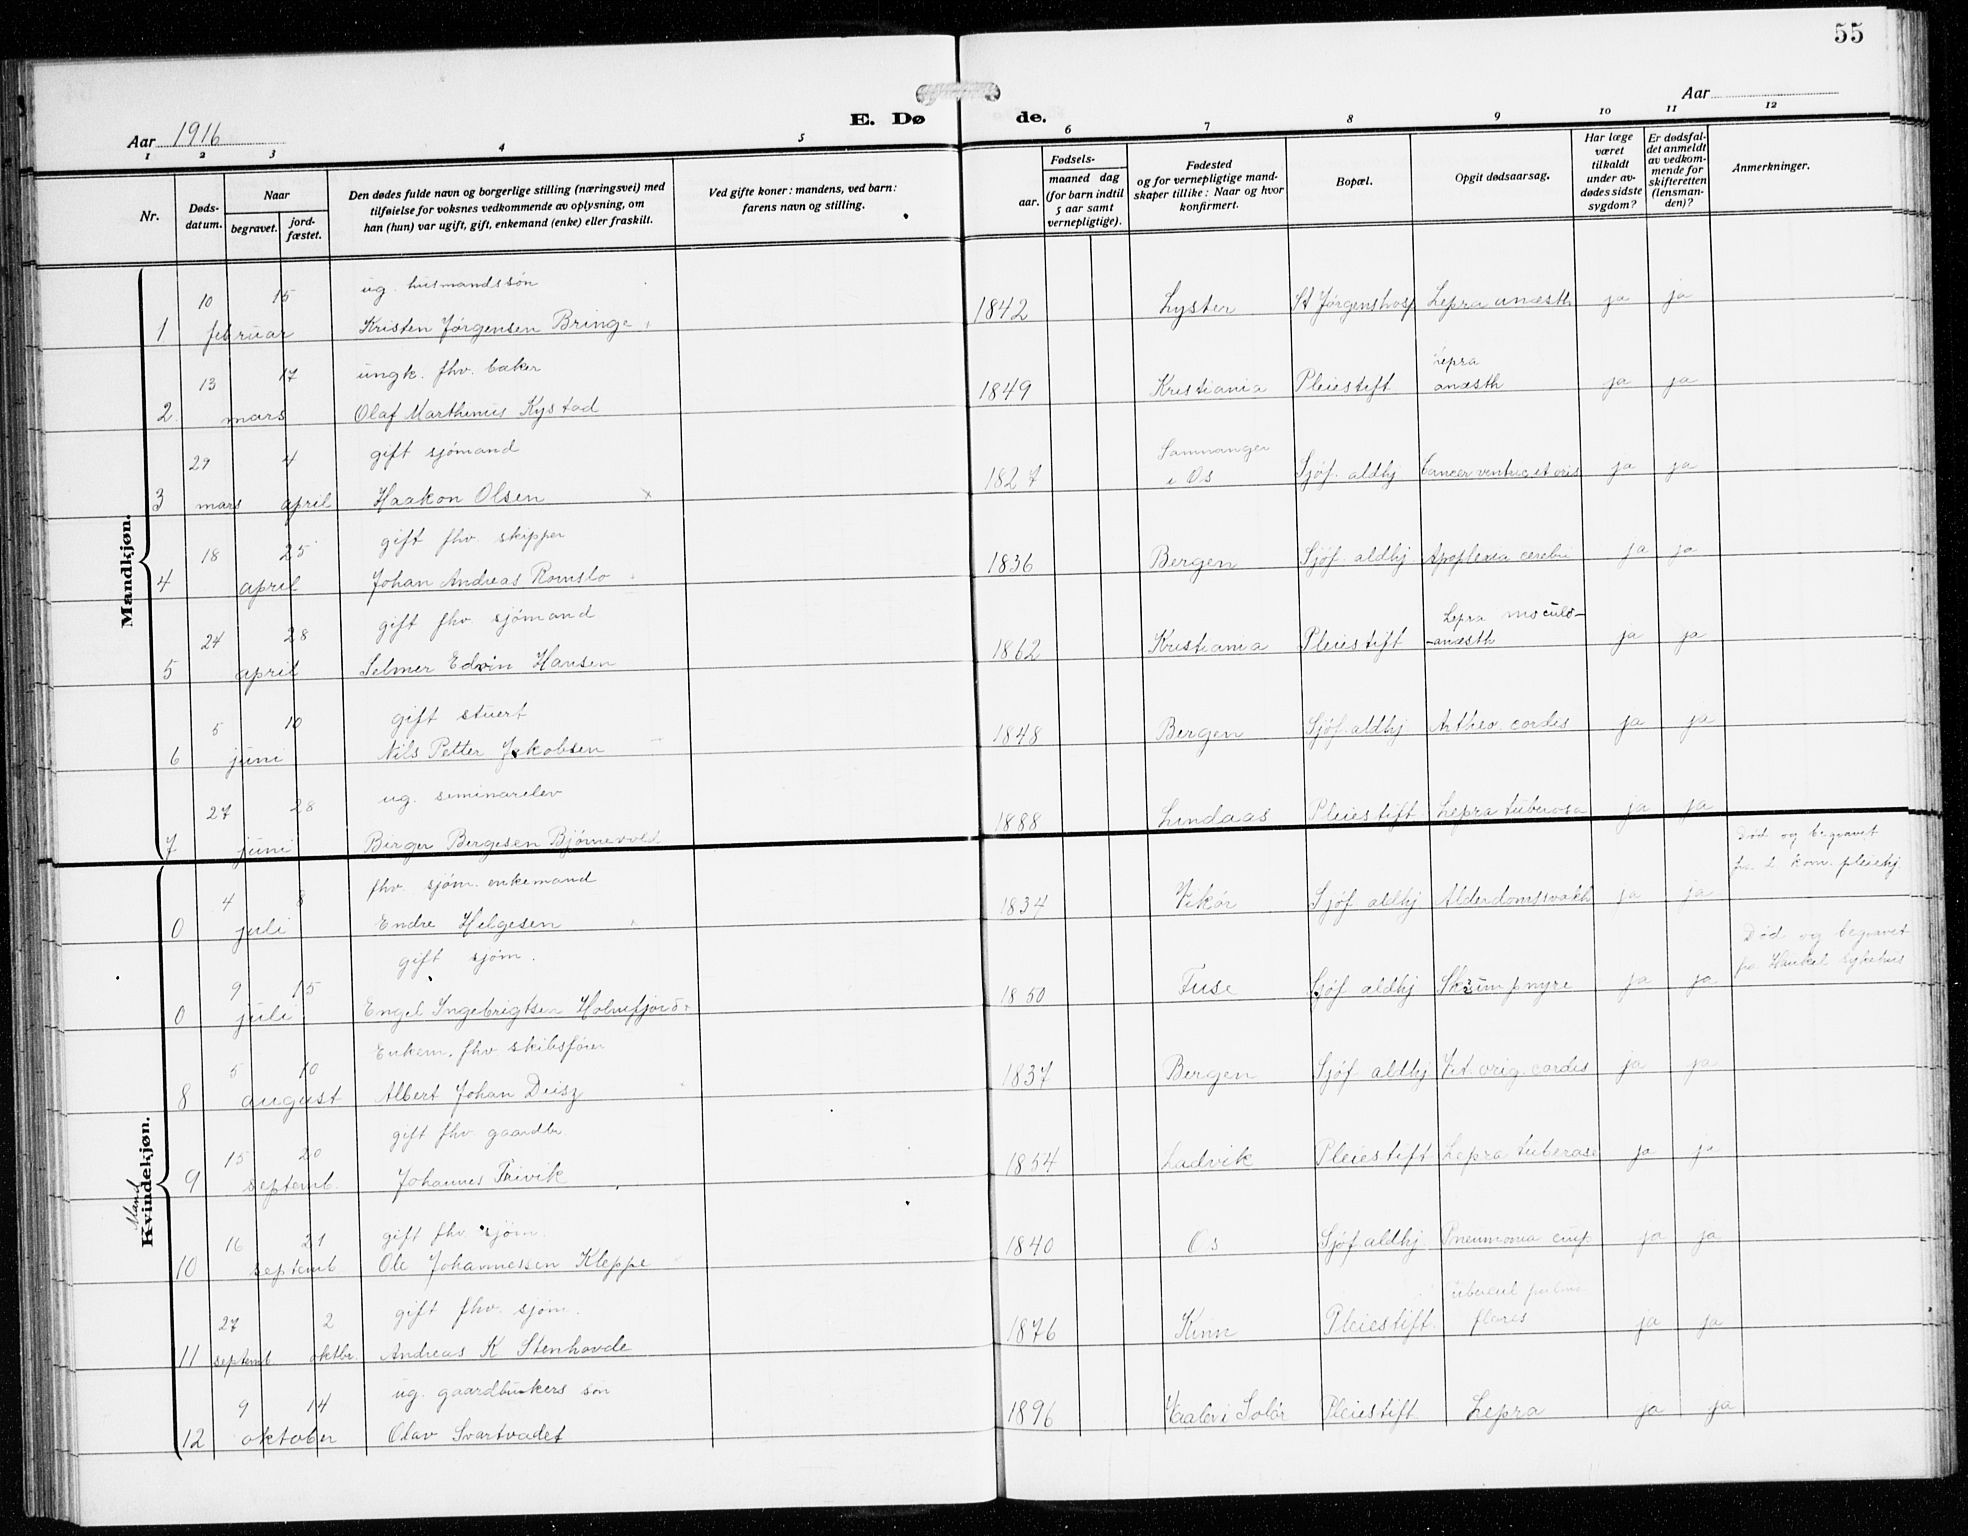 55
Aar 1916
E. Døde.
Aar
1 2 3 4 5 6 7 8 9 10 11 12
Nr.
Døds-
datum.
Naar
begravet.
jord-
fæstet.
Den dødes fulde navn og borgerlige stilling (næringsvei) med
tilføielse for voksnes vedkommende av oplysning, om
han (hun) var ugift, gift, enkemand (enke) eller fraskilt.
Ved gifte koner: mandens, ved barn:
farens navn og stilling.
Fødsels-
aar.
maaned dag
(for barn indtil
5 aar samt
vernepligtige).
Fødested
og for vernepligtige mand-
skaper tillike: Naar og hvor
konfirmert.
Bopæl.
Opgit dødsaarsag.
Har læge
været
tilkaldt
under av-
dødes sidste
sygdom?
Er dødsfal-
det anmeldt
av vedkom-
mende for
skifteretten
(lensman-
den)?
Anmerkninger.
Mandkjøn.
10 15 ug. husmandssøn
1 februar Kristen Jørgensen Bringe 1842 Lyster St Jørgenshosp Lepra anæsth ja ja
13 17 ungk. fhv. baker Lepra
2 mars Olaf Marthinus Kystad 1849 Kristiania Pleiestift anæsth ja ja
29 4 gift sjømand Samnanger
3 mars april Haakon Olsen 1827 i Os Sjøf. aldhj Cancer ventric et oris ja ja
18 25 gift fhv. skipper
4 april Johan Andreas Romslo 1836 Bergen Sjøf. aldhj Apoplexia cerebri ja ja
24 28 gift fhv. sjømand Lepra maculo-
5 april Selmer Edvin Hansen 1862 Kristiania Pleiestift -anæsth ja ja
5 10 gift stuert
6 juni Nils Petter Jakobsen 1848 Bergen Sjøf. aldhj cordis ja ja
27 28 ug. seminarelev
7 juni Birger Bergesen Bjørnevold 1888 Lindaas Pleiestift Lepra tuberosa ja ja
Mand
Kvindekjøn.
4 8 fhv. sjøm. enkemand Død og begravet
0 juli Endre Helgesen 1834 Vikør Sjøf. aldhj Alderdomssvakh ja ja kom. pleiehj.
9 15 gift sjøm. Død og begravet
0 juli Engel Ingebrigtsen Holmefjord 1850 Fuse Sjøf aldhj Skrumpnyre ja ja fra Haukel. sykehus
5 10 Enkem. fhv. skibsfører
8 august Albert Johan Deisz 1837 Bergen Sjøf. aldhj Vit. orig. cordis ja ja
15 20 gift fhv. gaardbr
9 septemb. Johannes Trivik 1854 Ladvik Pleiestift Lepra tuberose ja ja
16 21 gift fhv. sjøm.
10 septemb Ole Johannessen Kleppe 1840 Os Sjøf. aldhj Pneumonia crup. ja ja
27 2 gift fhv. sjøm.
11 septemb oktbr. Andreas K Stenhovde 1876 Kinn Pleiestift ja ja
9 14 ug. gaardbrukers søn
12 oktober Olav Svartvadet 1896 Vaaler i Solør Pleiestift Lepra ja ja